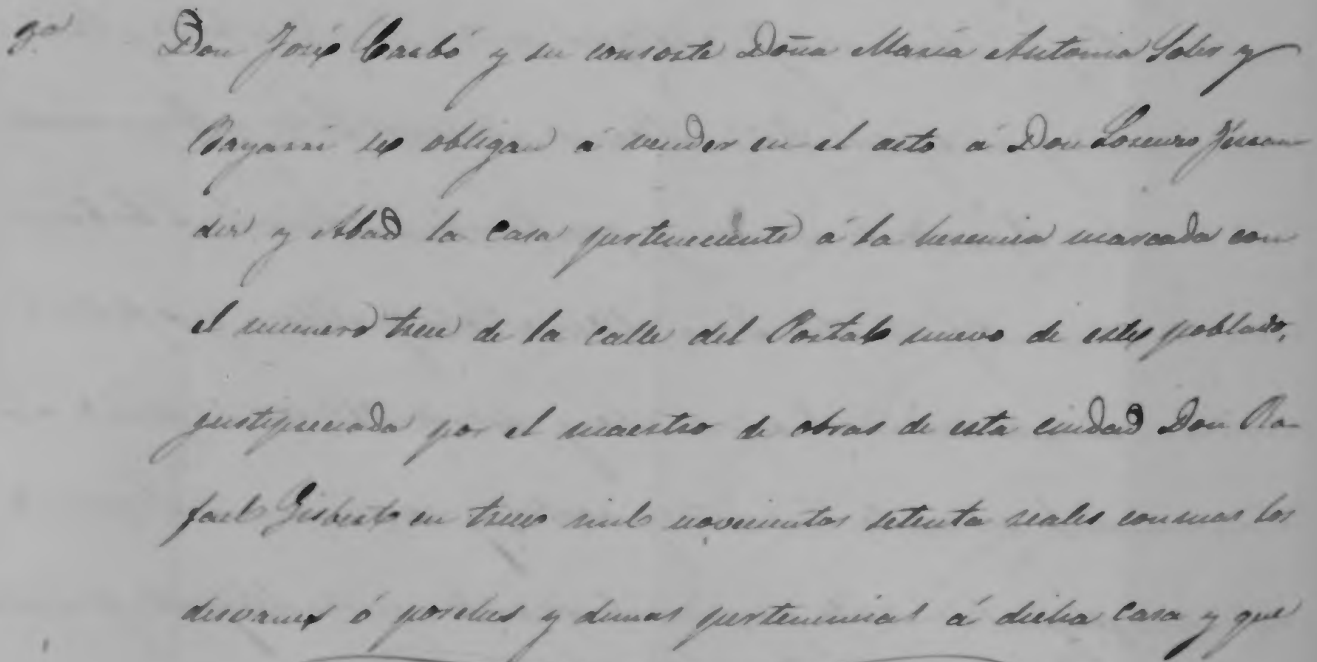 9ª Don José Carbó y su consorte Doña María Antonia Soler y
Bayarri se obligan á vender en el acto á Don Lorenzo Fernan
dez y Abad la casa perteneciente á la herencia marcada con
el numero trece de la calle del Portal nuevo de este poblado,
justipreciada por el maestro de obras de esta ciudad Don Ra-
fael Gisbert en trece mil novecientos setenta reales con mas los
desvanes ó porches y demas pertenencias á dicha casa y que